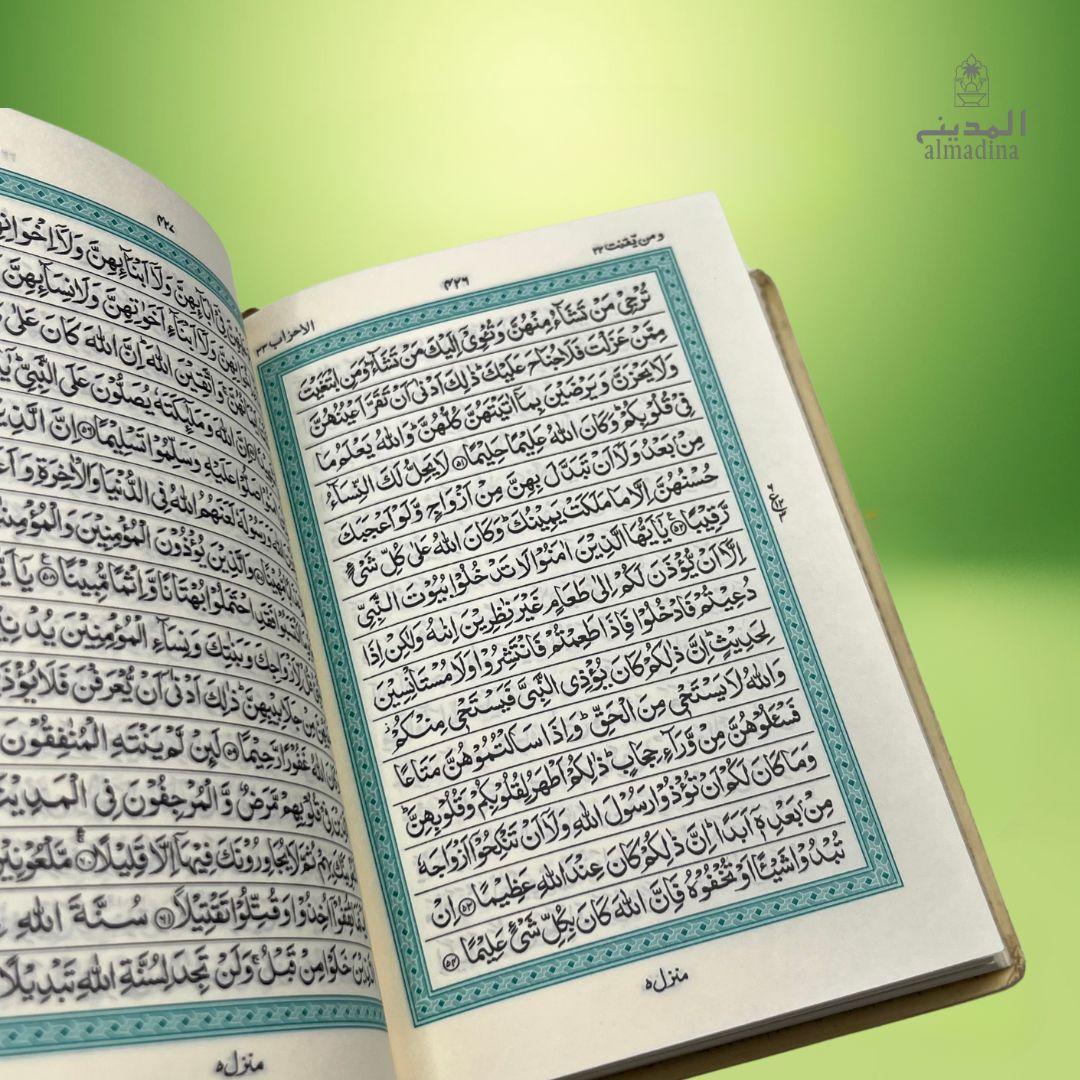 المدينة
almadina
ومن يقنت ٢٢
٤٢٦
الاحزاب ٣٣
تُرْجِيْ مَنْ تَشَآءُ مِنْهُنَّ وَتُـْٔوِيْٓ اِلَيْكَ مَنْ تَشَآءُ ؕ وَمَنِ ابْتَغَيْتَ
مِمَّنْ عَزَلْتَ فَلَا جُنَاحَ عَلَيْكَ ؕ ذٰلِكَ اَدْنٰٓى اَنْ تَقَرَّ اَعْيُنُهُنَّ
وَلَا يَحْزَنَّ وَيَرْضَيْنَ بِمَاۤ اٰتَيْتَهُنَّ كُلُّهُنَّ ؕ وَاللّٰهُ يَعْلَمُ مَا
فِيْ قُلُوْبِكُمْ ؕ وَكَانَ اللّٰهُ عَلِيْمًا حَلِيْمًا ﴿٥١﴾ لَا يَحِلُّ لَكَ النِّسَآءُ
مِنْۢ بَعْدُ وَلَاۤ اَنْ تَبَدَّلَ بِهِنَّ مِنْ اَزْوَاجٍ وَّلَوْ اَعْجَبَكَ
حُسْنُهُنَّ اِلَّا مَا مَلَكَتْ يَمِيْنُكَ ؕ وَكَانَ اللّٰهُ عَلٰى كُلِّ شَيْءٍ
رَّقِيْبًا ﴿٥٢﴾ يٰۤاَيُّهَا الَّذِيْنَ اٰمَنُوْا لَا تَدْخُلُوْا بُيُوْتَ النَّبِيِّ
اِلَّاۤ اَنْ يُّؤْذَنَ لَكُمْ اِلٰى طَعَامٍ غَيْرَ نٰظِرِيْنَ اِنٰىهُ وَلٰكِنْ اِذَا
دُعِيْتُمْ فَادْخُلُوْا فَاِذَا طَعِمْتُمْ فَانْتَشِرُوْا وَلَا مُسْتَاْنِسِيْنَ
لِحَدِيْثٍ ؕ اِنَّ ذٰلِكُمْ كَانَ يُؤْذِى النَّبِيَّ فَيَسْتَحْيٖ مِنْكُمْ ؗ
وَاللّٰهُ لَا يَسْتَحْيٖ مِنَ الْحَقِّ ؕ وَاِذَا سَاَلْتُمُوْهُنَّ مَتَاعًا
فَسْـَٔلُوْهُنَّ مِنْ وَّرَآءِ حِجَابٍ ؕ ذٰلِكُمْ اَطْهَرُ لِقُلُوْبِكُمْ وَقُلُوْبِهِنَّ ؕ
وَمَا كَانَ لَكُمْ اَنْ تُؤْذُوْا رَسُوْلَ اللّٰهِ وَلَاۤ اَنْ تَنْكِحُوْۤا اَزْوَاجَهٗ
مِنْۢ بَعْدِهٖۤ اَبَدًا ؕ اِنَّ ذٰلِكُمْ كَانَ عِنْدَ اللّٰهِ عَظِيْمًا ﴿٥٣﴾ اِنْ
تُبْدُوْا شَيْـًٔا اَوْ تُخْفُوْهُ فَاِنَّ اللّٰهَ كَانَ بِكُلِّ شَيْءٍ عَلِيْمًا ﴿٥٤﴾
منزل ٥
٤٢٧
فِيْۤ اٰبَآئِهِنَّ وَلَاۤ اَبْنَآئِهِنَّ وَلَاۤ
وَلَاۤ اَبْنَآءِ اَخَوٰتِهِنَّ وَلَا نِسَآئِهِنَّ
وَاتَّقِيْنَ اللّٰهَ ؕ اِنَّ اللّٰهَ كَانَ عَلٰى
اللّٰهَ وَمَلٰٓئِكَتَهٗ يُصَلُّوْنَ عَلَى النَّبِيِّ
صَلُّوْا عَلَيْهِ وَسَلِّمُوْا تَسْلِيْمًا ﴿٥٦﴾ اِنَّ
وَرَسُوْلَهٗ لَعَنَهُمُ اللّٰهُ فِى الدُّنْيَا وَالْاٰخِرَةِ
وَالَّذِيْنَ يُؤْذُوْنَ الْمُؤْمِنِيْنَ
فَقَدِ احْتَمَلُوْا بُهْتَانًا وَّاِثْمًا مُّبِيْنًا ﴿٥٨﴾
لِّاَزْوَاجِكَ وَبَنٰتِكَ وَنِسَآءِ الْمُؤْمِنِيْنَ
مِنْ جَلَابِيْبِهِنَّ ؕ ذٰلِكَ اَدْنٰۤى اَنْ يُّعْرَفْنَ فَلَا
اللّٰهُ غَفُوْرًا رَّحِيْمًا ﴿٥٩﴾ لَئِنْ لَّمْ يَنْتَهِ الْمُنٰفِقُوْنَ
فِيْ قُلُوْبِهِمْ مَّرَضٌ وَّالْمُرْجِفُوْنَ فِى
لَا يُجَاوِرُوْنَكَ فِيْهَاۤ اِلَّا قَلِيْلًا ﴿٦٠﴾
ثُقِفُوْۤا اُخِذُوْا وَقُتِّلُوْا تَقْتِيْلًا ﴿٦١﴾ سُنَّةَ اللّٰهِ
الَّذِيْنَ خَلَوْا مِنْ قَبْلُ ۚ وَلَنْ تَجِدَ لِسُنَّةِ اللّٰهِ تَبْدِيْلًا
منزل ٥